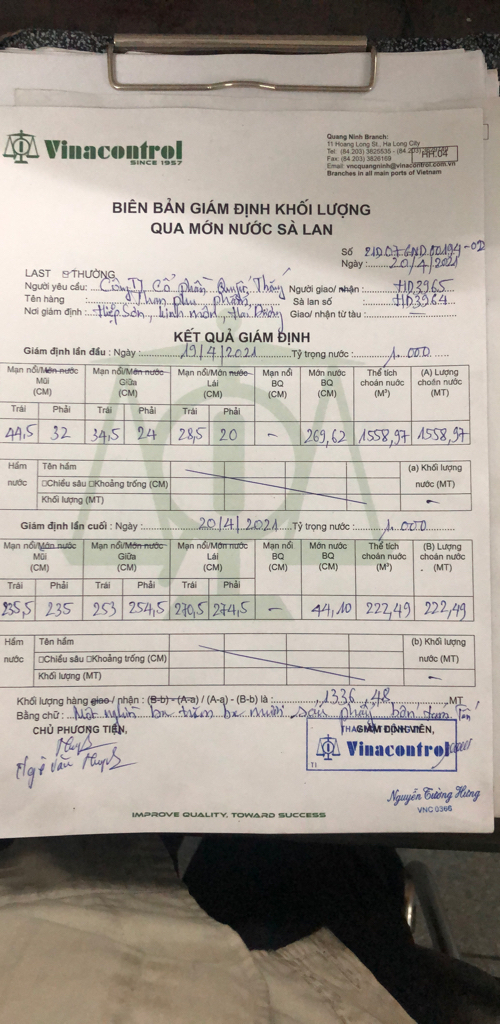 Vinacontrol
SINCE 1957
Quang Ninh Branch:
11 Hoang Long St., Ha Long City
Tel: (84.203) 3825536 - (84.203)
Fax: (84.203) 3826169
Email: vncquangninh@vinacontrol.com.vn
Branches in all main ports of Vietnam
HH.04
BIÊN BẢN GIÁM ĐỊNH KHỐI LƯỢNG
QUA MỚN NƯỚC SÀ LAN
Số 21D07GND00194-02
Ngày: 20/4/2021
LAST THƯỜNG
Người yêu cầu: Công Ty Cổ phần Quyết Thắng Người giao/nhận: HD3965
Tên hàng: Than phụ phẩm Sà lan số: HD3964
Nơi giám định: Hiệp Sơn, Kinh môn, Hải Dương Giao/ nhận từ tàu: —
KẾT QUẢ GIÁM ĐỊNH
Giám định lần đầu : Ngày: 19/4/2021 Tỷ trọng nước: 1.000
Mạn nổi/Mớn nước Mũi (CM) Mạn nổi/Mớn nước Giữa (CM) Mạn nổi/Mớn nước Lái (CM) Mạn nổi BQ (CM) Mớn nước BQ (CM) Thể tích choán nước (M³) (A) Lượng choán nước (MT)
Trái Phải Trái Phải Trái Phải
44,5 32 34,5 24 28,5 20 – 269,62 1558,97 1558,97
Hầm nước Tên hầm (a) Khối lượng nước (MT)
□Chiều sâu □Khoảng trống (CM)
Khối lượng (MT) –
Giám định lần cuối : Ngày: 20/4/2021 Tỷ trọng nước: 1.000
Mạn nổi/Mớn nước Mũi (CM) Mạn nổi/Mớn nước Giữa (CM) Mạn nổi/Mớn nước Lái (CM) Mạn nổi BQ (CM) Mớn nước BQ (CM) Thể tích choán nước (M³) (B) Lượng choán nước (MT)
Trái Phải Trái Phải Trái Phải
235,5 235 253 254,5 270,5 274,5 – 44,10 222,49 222,49
Hầm nước Tên hầm (b) Khối lượng nước (MT)
□Chiều sâu □Khoảng trống (CM)
Khối lượng (MT) –
Khối lượng hàng giao / nhận : (B-b) - (A-a) / (A-a) - (B-b) là : 1336,48 MT
Bằng chữ: Một nghìn ba trăm ba mươi sáu phẩy bốn tám Tấn
CHỦ PHƯƠNG TIỆN, GIÁM ĐỊNH VIÊN,
Vinacontrol
T1
Ngô Văn Huynh
Nguyễn Tường Hưng
VNC 0366
IMPROVE QUALITY, TOWARD SUCCESS